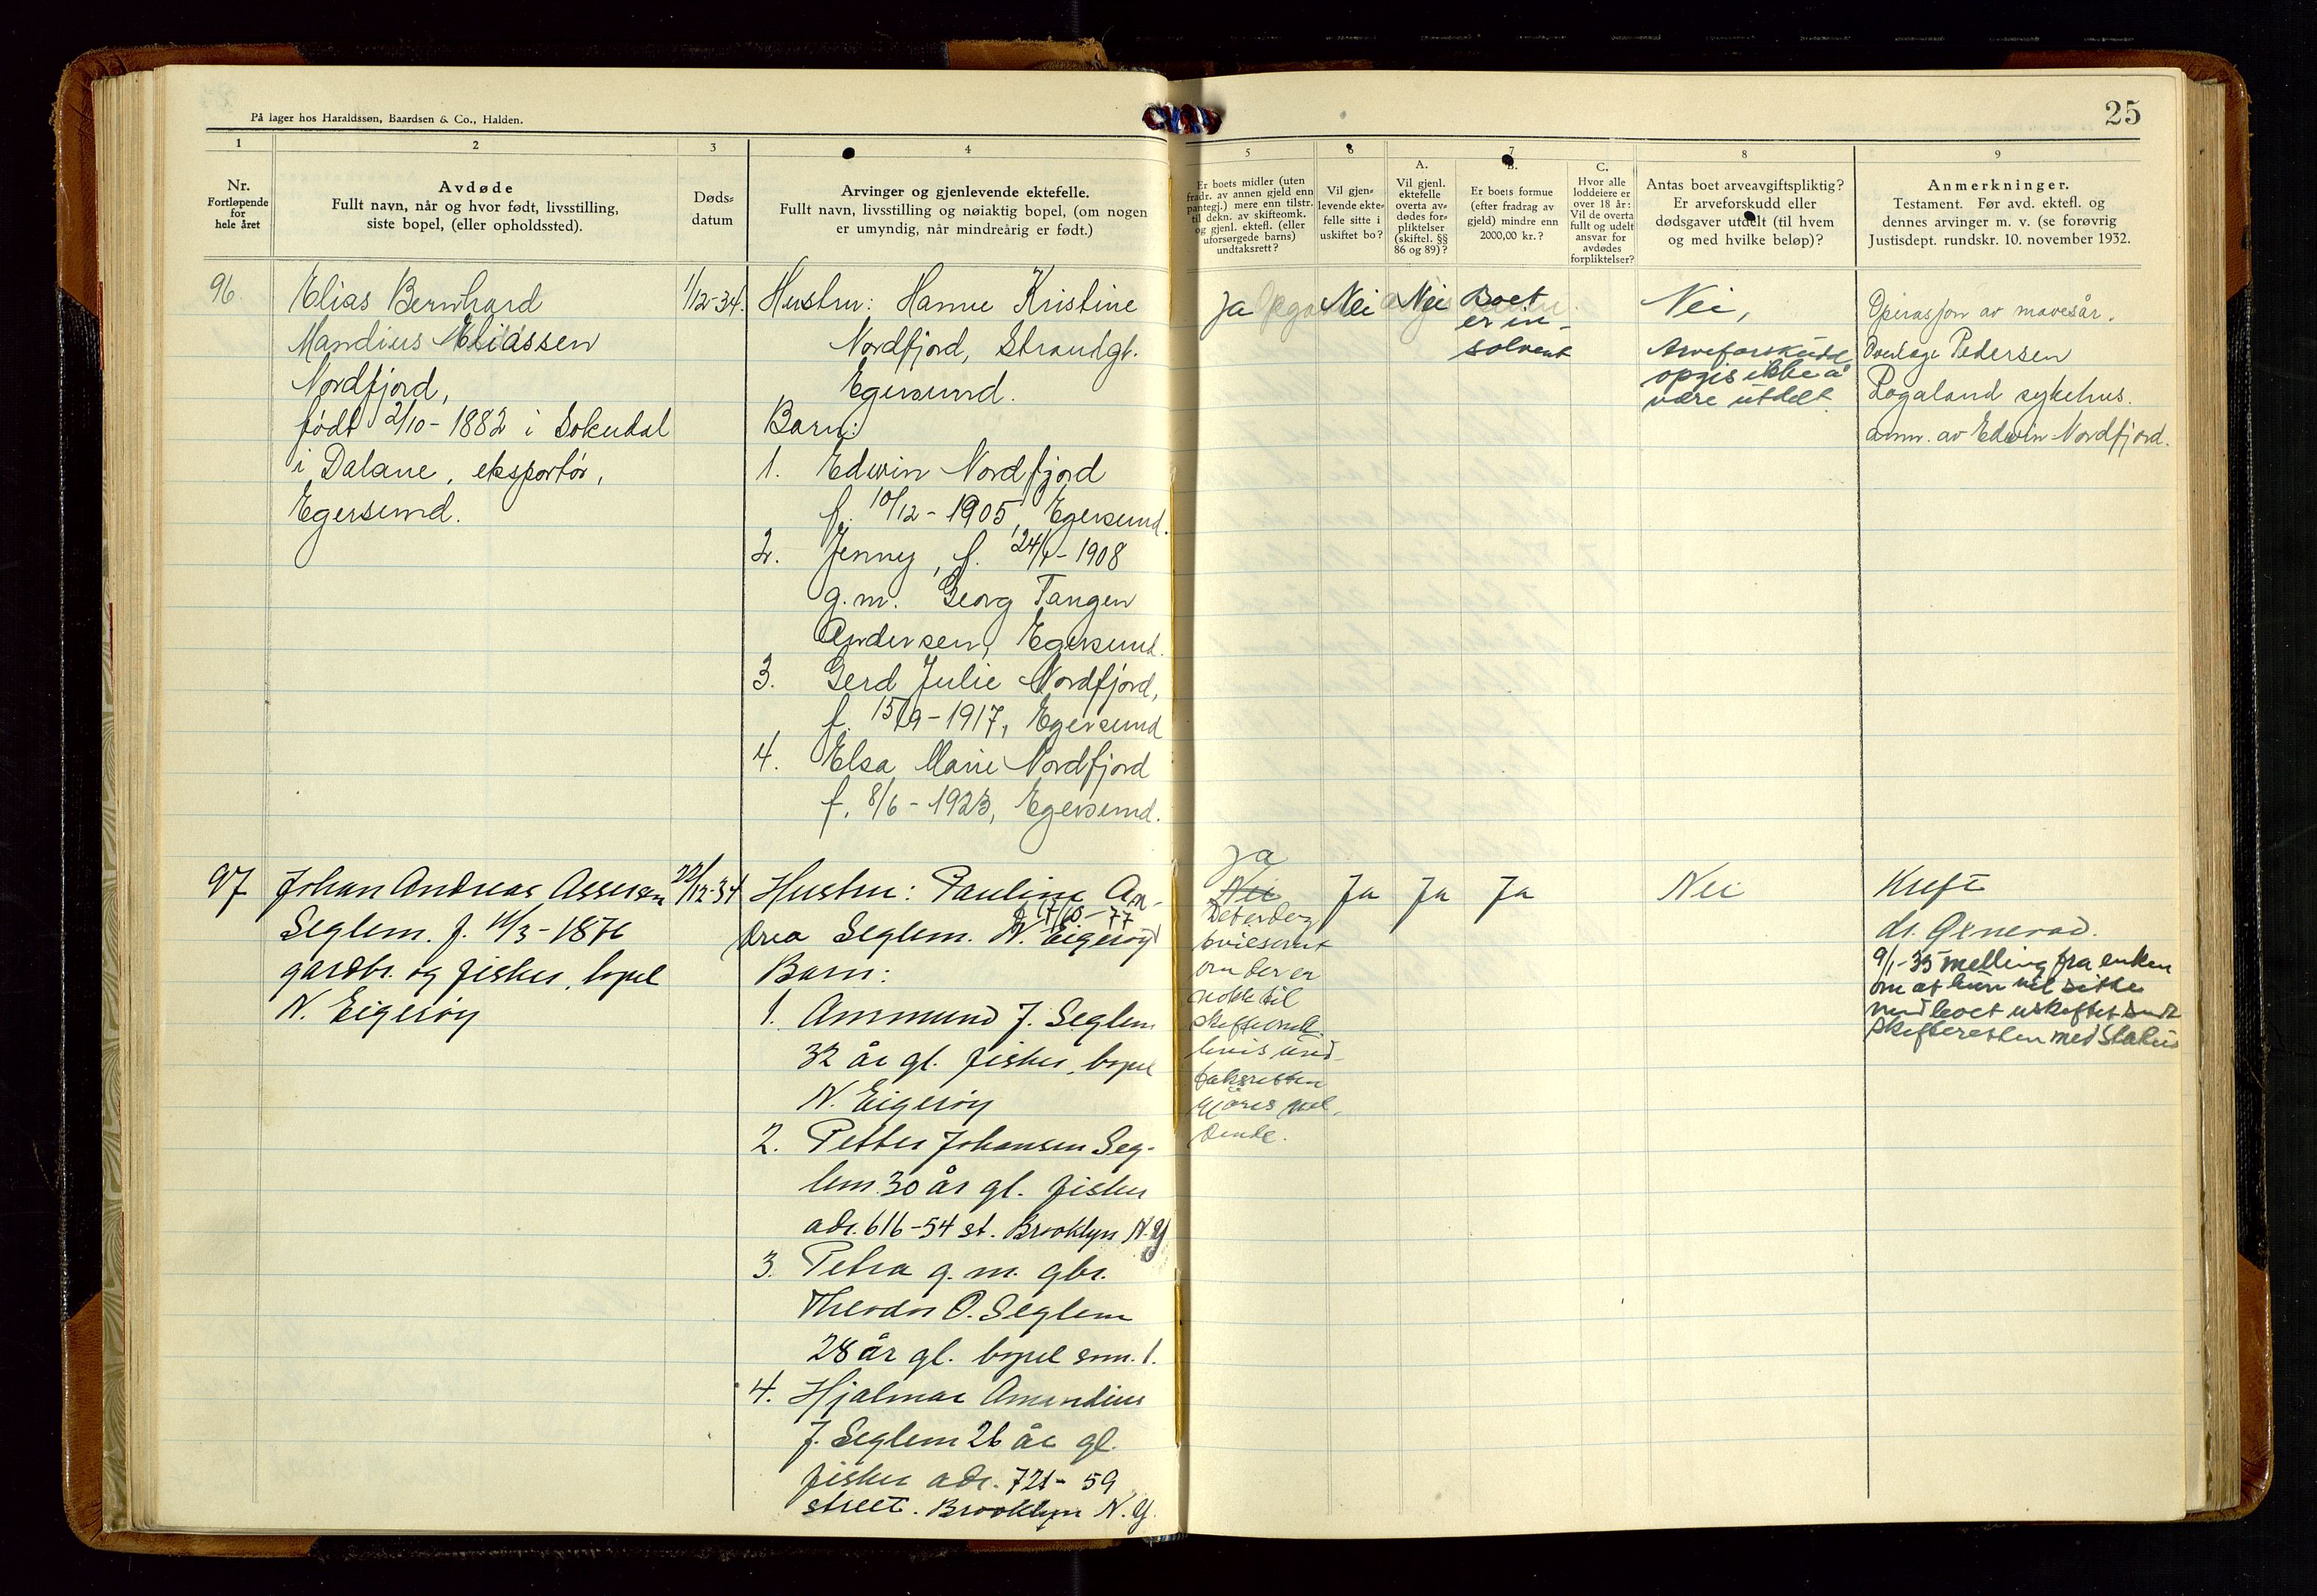 25
På lager hos Haraldssøn, Baardsen & Co., Halden.
1
2
3
4
5
6
7
8
9
Nr.
Fortløpende
for
hele året
Avdøde
Fullt navn, når og hvor født, livsstilling,
siste bopel, (eller opholdssted).
Døds-
datum
Arvinger og gjenlevende ektefelle.
Fullt navn, livsstilling og nøiaktig bopel, (om nogen
er umyndig, når mindreårig er født.)
Er boets midler (uten
fradr. av annen gjeld enn
pantegj.) mere enn tilstr.
til dekn. av skifteomk.
og gjenl. ektefl. (eller
uforsørgede barns)
undtaksrett?
Vil gjen-
levende ekte-
felle sitte i
uskiftet bo?
A.
Vil gjenl.
ektefelle
overta av-
dødes for-
pliktelser
(skiftel. §§
86 og 89)?
B.
Er boets formue
(efter fradrag av
gjeld) mindre enn
2000,00 kr.?
C.
Hvor alle
loddeiere er
over 18 år:
Vil de overta
fullt og udelt
ansvar for
avdødes
forpliktelser?
Antas boet arveavgiftspliktig?
Er arveforskudd eller
dødsgaver utdelt (til hvem
og med hvilke beløp)?
Anmerkninger.
Testament. Før avd. ektefl. og
dennes arvinger m. v. (se forøvrig
Justisdept. rundskr. 10. november 1932.
96.
Elias Bernhard
Mandius Eliassen
Nordfjord,
født 2/10-1882 i Sokndal
i Dalane, eksportør,
Egersund.
1/12-34.
Hustru: Hanne Kristine
Nordfjord, Strandgt.
Egersund.
Barn:
1. Edwin Nordfjord
f. 10/12-1905, Egersund.
2. Jenny, f. 24/1-1908
g.m. Georg Tangen
Andersen, Egersund.
3. Gerd Julie Nordfjord,
f. 15/9-1917, Egersund
4. Elsa Marie Nordfjord
f. 8/6-1923, Egersund.
Ja
Nei
Nei
Boet
er in-
solvent
Nei,
Arveforskudd
opgis ikke å
være utdelt
Operasjon av mavesår.
Overlæge Pedersen
Rogaland sykehus.
anm. av Edwin Nordfjord.
97
Johan Andreas Assersen
Seglem. f. 11/3-1876
gardbr. og fisker, bopel
N. Eigerøy
22/12-34
Hustru: Pauline An-
f. 17/10-77
drea Seglem. N. Eigerøy
Barn:
1. Ammund J. Seglem
32 år gl. fisker, bopel
N. Eigerøy
2. Petter Johansen Seg-
lem 30 år gl. fisker
adr. 616-54 st. Brooklyn N.Y
3. Petra g. m. gbr.
Theodor O. Seglem
28 år gl. bopel som 1.
4. Hjalmar Amandius
J. Seglem 26 år gl.
fisker adr. 721-59
street. Brooklyn N.Y.
Ja
Nei
Det er dog
tvilsomt
om der er
nokk til
skifteomk.
hvis und-
taksretten
gjøres gjel-
dende.
Ja
Ja
Ja
Nei
Kreft
dr. Generad.
9/1-35 melling fra enken
om at hun vil sitte
med boet uskiftet sendt
skifteretten med status